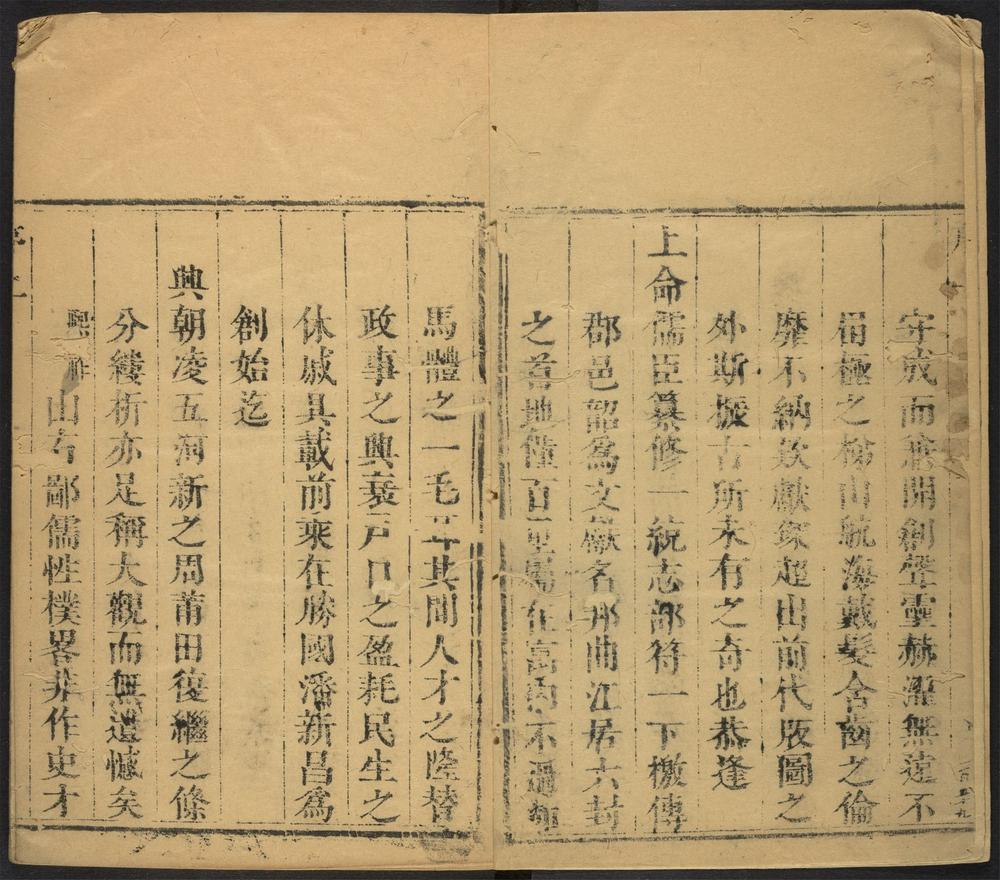 守成而兼開創聲靈赫濯無遠不
屆極之梯山航海戴髮含齒之倫
靡不納欵獻琛超出前代版圖之
外斯振古所未有之奇也恭逢
上命儒臣纂修一統志部符一下檄傳
郡邑韶為文獻名邦曲江居六封
之首地僅百里屬在寓內不過
馬體之一毛耳其間人才之隆替
政事之興衰戶口之盈耗民生之
休戚具載前乘在勝國潘新昌為
創始迄
興朝凌五河新之周莆田復繼之條
分縷析亦足稱大觀而無遺憾矣
熙祚山右鄙儒性樸畧非作史才